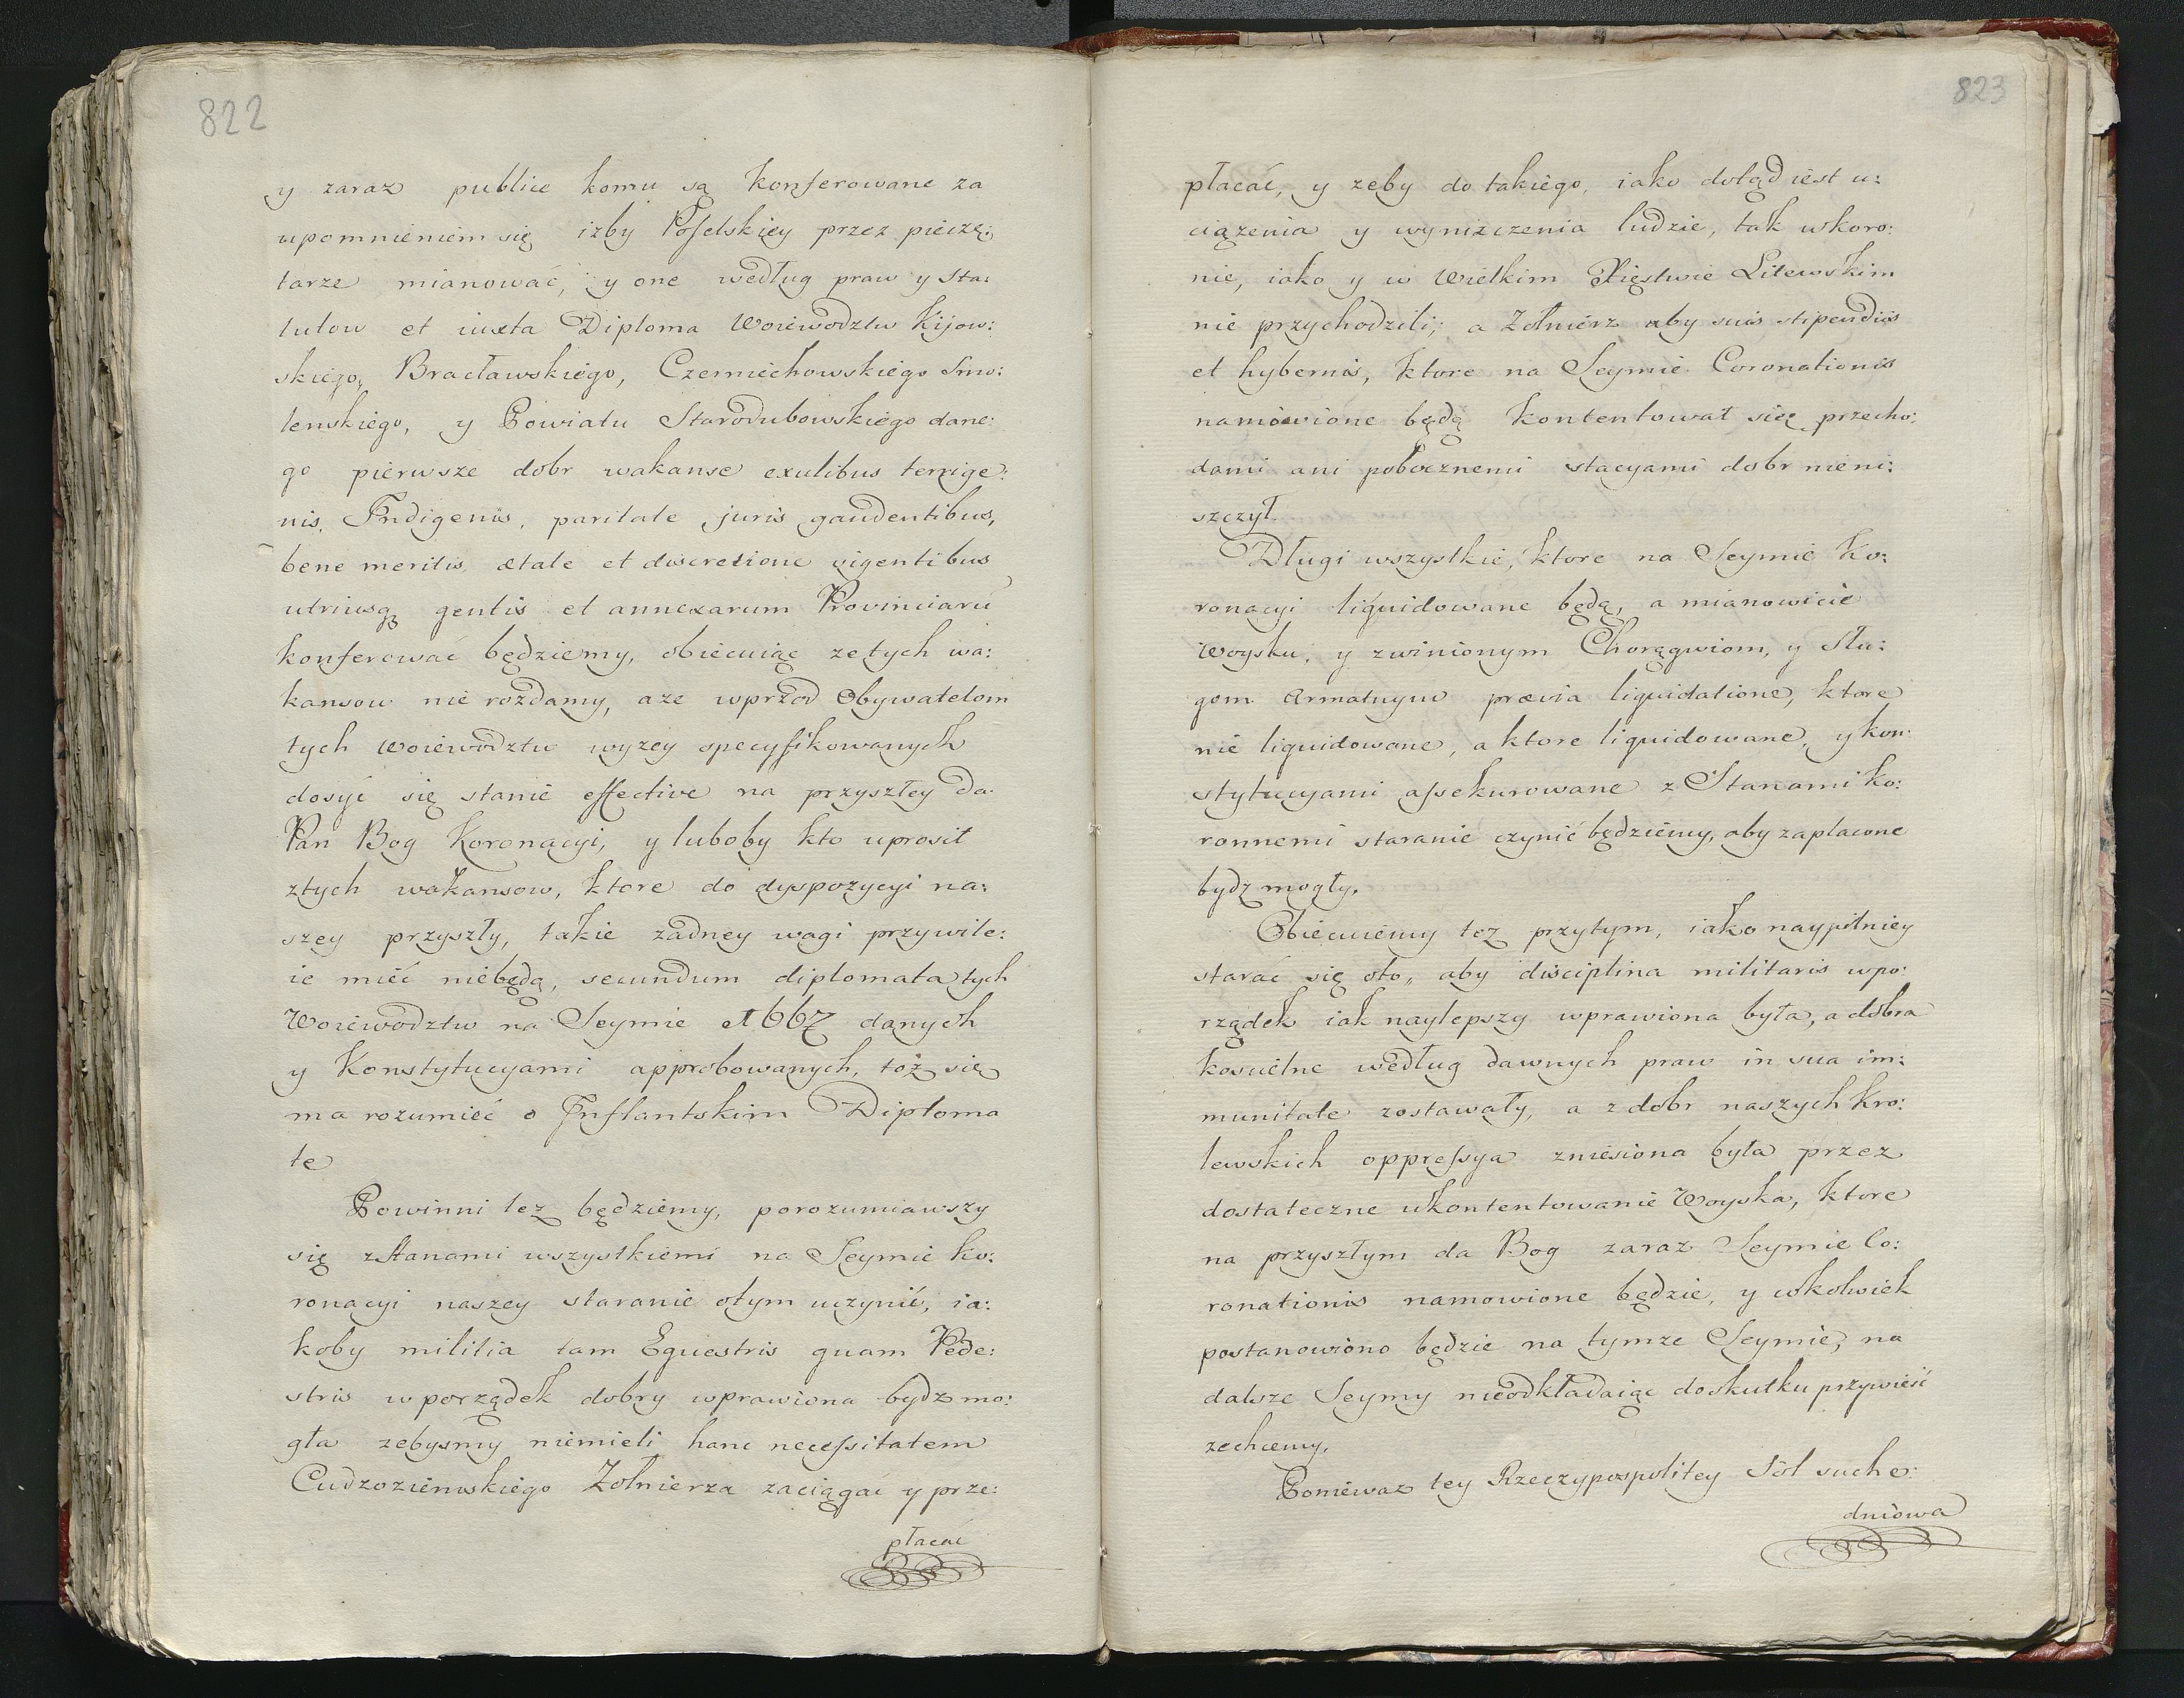 822
y zaraz publice komu są konferowane za
upomnieniem się izby Poſelskiey przez pieczę:
tarze mianować, y one według praw y Sta:
tutow et iuxta Diploma Woiewodztw Kijow:
skiego, Bracławskiego, Czerniechowskiego Smo:
lenskiego, y Powiatu Starodubowskiego dane:
go pierwsze dobr wakanse exulibus terrige:
nis, Indigenis, paritate juris gaudentibus,
bene meritis ætate et discretione vigentibus
utriusqꝫ gentis et annexarum Provinciarū
konferować będziemy, obiecuiąc ze tych wa:
kansow nie rozdamy, aze wprzod Obywatelom
tych woiewodztw wyzey specyfikowanych
dosyć się stanie effective na przyszłey da
Pan Bog Koronacyi, y luboby kto uprosił
z tych wakansow, ktore do dyspozycyi na:
szey przyszły, takie zadney wagi przywile:
ie mieć niebędą, secundum diplomata tych
Woiewodztw na Seymie A 1667 danych
y Konstytucyami approbowanych, toż się
ma rozumieć o Inflantskim Diploma
te
Powinni też będziemy, porozumiawszy
się z Stanami wszystkiemi na Seymie ko:
ronacyi naszey staranie otym uczynić, ia:
koby militia tam Equestris quam Pede:
stris w porządek dobry wprawiona bydz mo:
gła zebysmy niemieli hanc neceſsitatem
Cudzoziemskiego Zołnierza zaciągać y prze:
płacać
823
płacać, y zeby do takiego, iako dotąd iest u:
ciązenia y wyniszczenia ludzie, tak wkoro:
nie, iako y w Wielkim Xięstwie Litewskim
nie przychodzili; a Zołnierz aby suis stipendiis
et hybernis, ktore na Seymie Coronationis
namówione będą kontentował się, przecho:
dami ani pobocznemi stacyami dobr nieni:
szczył.
Długi wszystkie, ktore na Seymie Ko:
ronacyi liquidowane będą, a mianowicie
Woysku, y zwinionym Chorągwiom, y Słu:
gom Armatnym prævia liquidatione, ktore
nie liquidowane, a ktore liquidowane, y kon:
stytucyami aſsekurowane z Stanami ko:
ronnemi staranie czynić będziemy, aby zapłacone
bydz mogły.
Obiecuiemy tez przytym, iako naypilniey
starać się oto, aby disciplina militaris wpo:
rządek iak naylepszy wprawiona była, a dobra
koscielne według dawnych praw in sua im:
munitate zostawały, a z dobr naszych kro:
lewskich oppreſsya zniesiona była przez
dostateczne ukontentowanie Woyska, ktore
na przyszłym da Bog zaraz Seymie Co:
ronationis namowione będzie, y cokolwiek
postanowiono będzie na tymze Seymie, na
dalsze Seymy nieodkładaiąc do skutku przywieść
zechcemy.
Poniewaz tey Rzeczypospolitey Sól suche:
dniowa